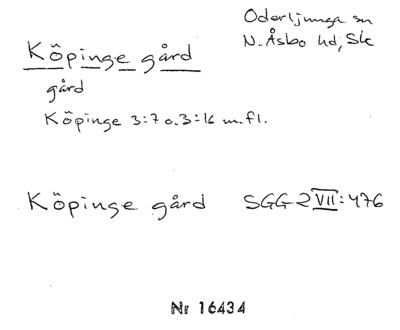 Oderljunga sn
N. Åsbo hd, Sk
Köpinge gård
gård
Köpinge 3:7 o. 3:16 m.fl.
Köpinge gård SGG 2 VII:476
Nr 16434